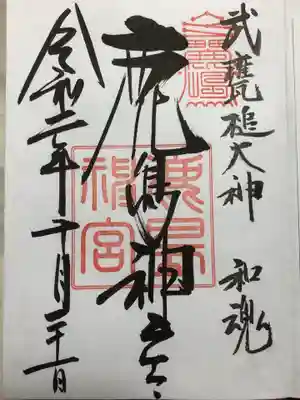 武甕槌大神 和魂
鹿島神宮
鹿島
神宮
令和二年十月二十一日